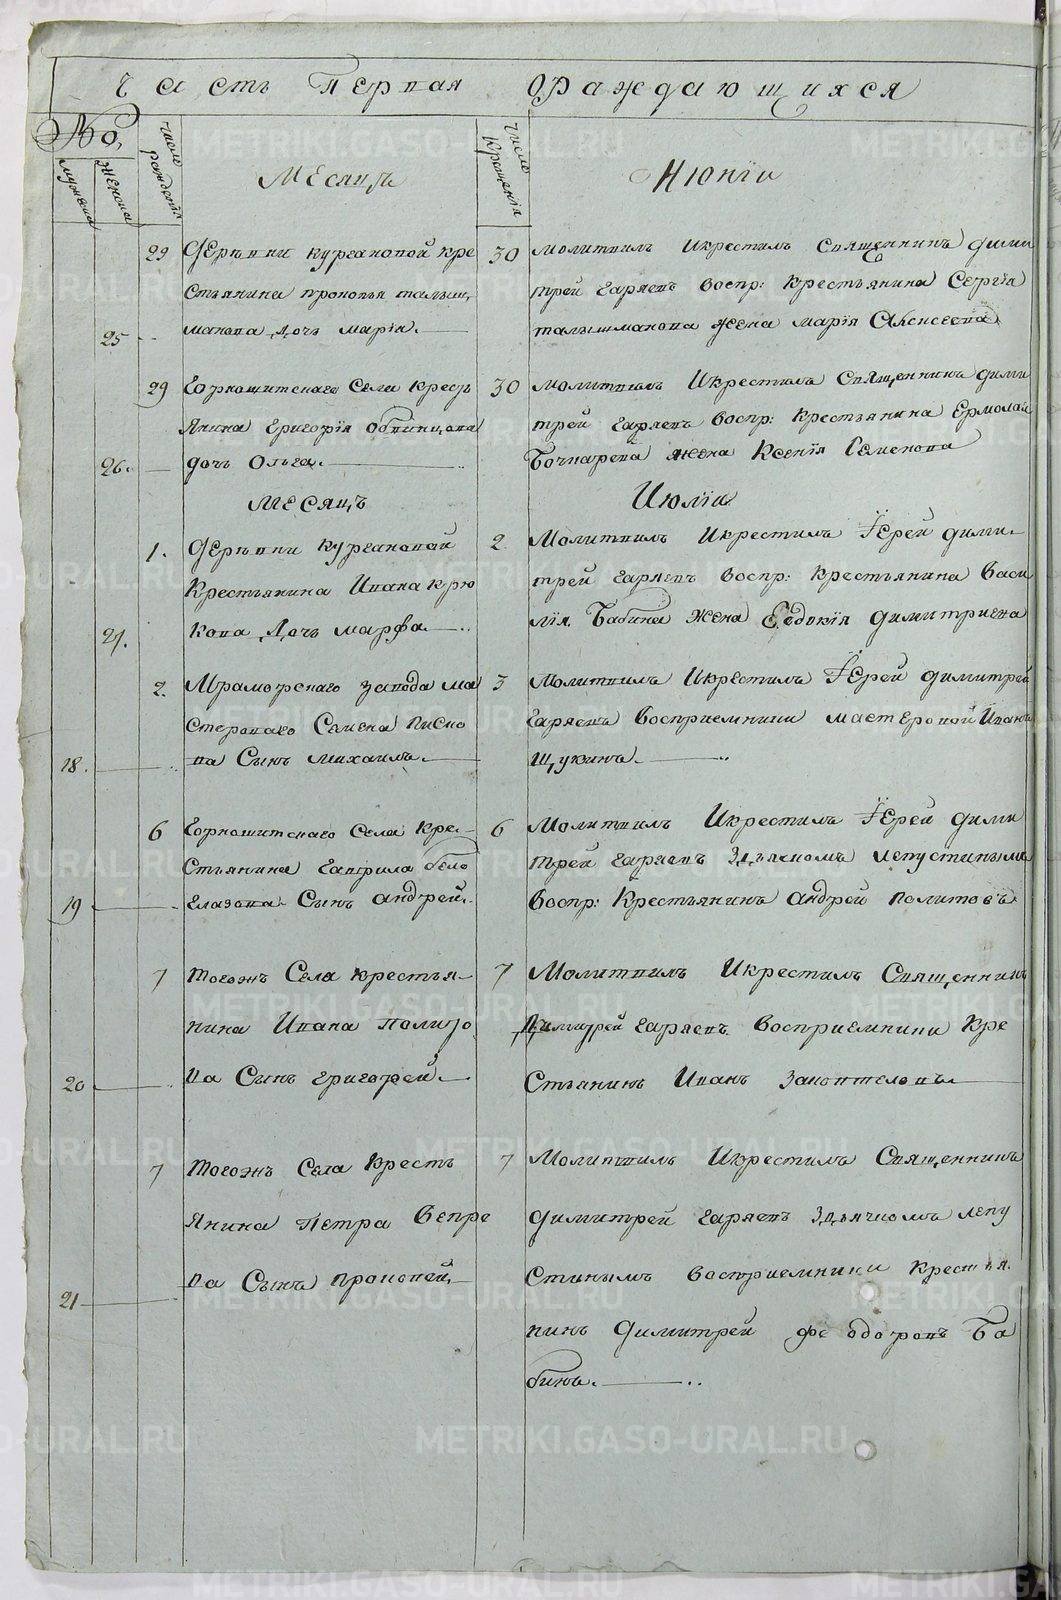 Часть Первая Ораждающихся
№
мужеска
женска
число рождения
Месяцъ
число крещенїя
Июнїи
29 Деревни Кургановой кре
стьянина Прокопья Талыш
25 манова дочь Марїя.
30 Молитвилъ Икрестилъ Священникъ Дими
трей Гаряевъ Воспр: Крестьянина Сергїя
Талышманова жена Марїя Алексеева
29 Горнощитскаго Села Кресть
янина Григорїя Обвинцова
26. дочь Ольга.
30 Молитвилъ Икрестилъ Священникъ Дими
трей Гаряевъ Воспр: Крестьянина Ермолаи
Бочкарева жена Ксенїя Семенова
Месяцъ Июлїи
1. Деревни Кургановой
Крестьянина Ивана Крю
27. кова дочь Марфа.
2. Молитвилъ Икрестилъ Їерей Дими
трей Гаряевъ Воспр: Крестьянина Васи
лїя Бабина Жена Евдокїя Димитриева
2. Мраморскаго завода ма
стероваго Семена Писцо
18. ва Сынъ Михаилъ.
3 Молитвилъ Икрестилъ Їерей Димитрей
Гаряевъ Восприемники мастеровой Иванъ
Щукинъ.
6 Горнощитскаго Села Кре
стьянина Гаврила Бело
19 глазова Сынъ Андрей.
6 Молитвилъ Икрестилъ Їерей Дими
трей Гаряевъ Здьячкомъ Лепустинымъ
Воспр: Крестьянинъ Андрей Политовъ
7 Тогожъ Села крестья
нина Ивана Полито
20 ва Сынъ Григорей.
7 Молитвилъ Икрестилъ Священникъ
Димитрей Гаряевъ Восприемники Кре
Стьянинъ Иванъ Закоптеловъ
7 Тогожъ Села Кресть
янина Петра Вепре
21 ва Сынъ Прокопей,
7 Молитвилъ Икрестилъ Священникъ
Димитрей Гаряевъ Здьячкомъ Лепу
Стинымъ Восприемники Крестья
нинъ Димитрей Федоровъ Ба
бинъ.
METRIKI.GASO-URAL.RU